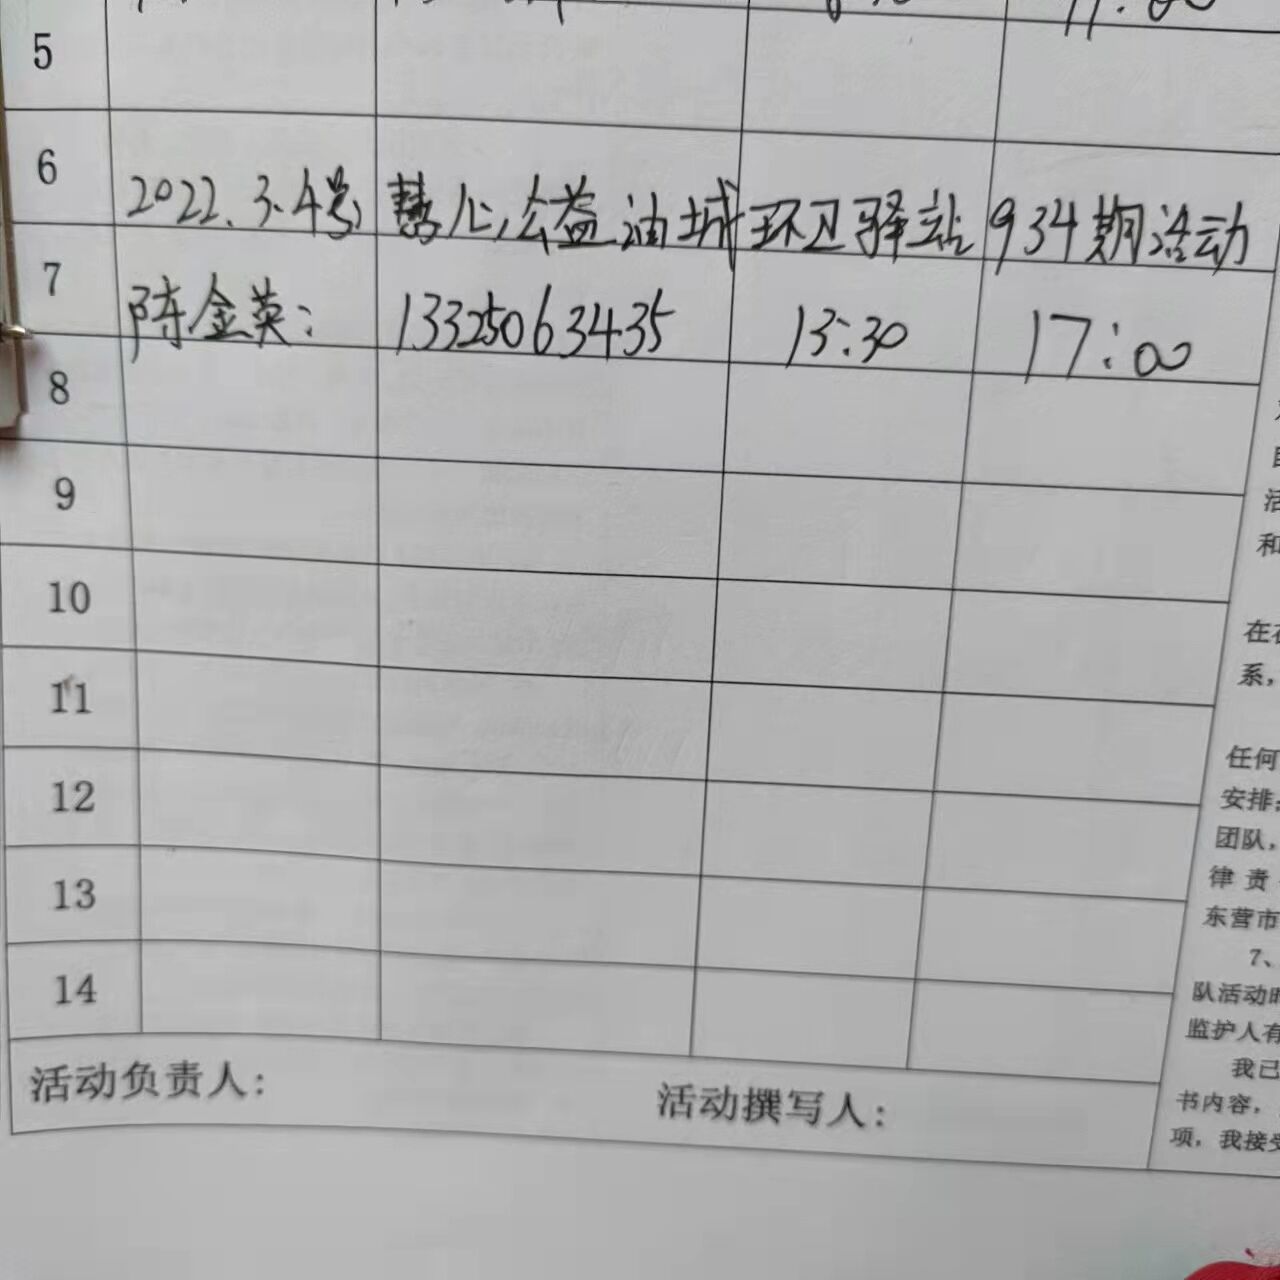 5
6 2022.3.4号 慧心公益油城环卫驿站934期活动
7 陈金英: 13325063435 13:30 17:00
8
9
10
11
12
13
14
活动负责人: 活动撰写人:
活
和
在
系，
任何
安排
团队，
律责
东营市
7、
队活动
监护人有
我已
书内容，
项，我接受